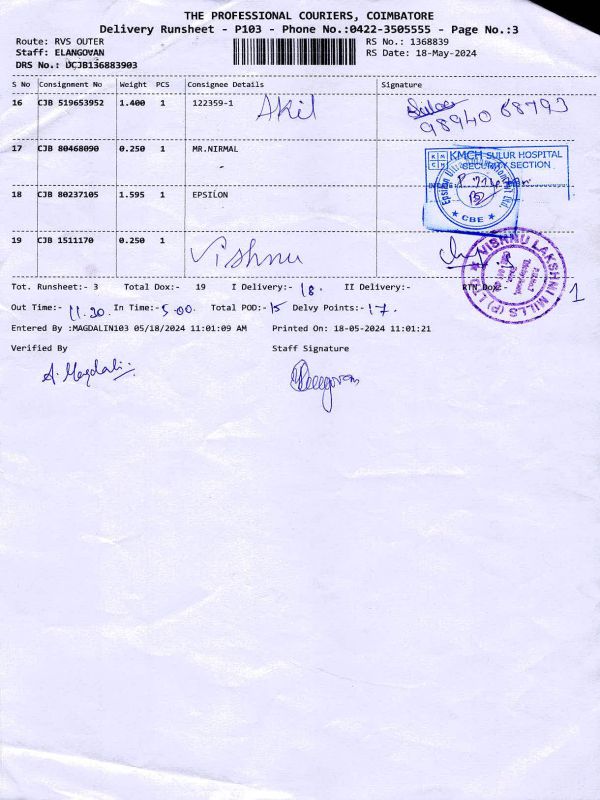 THE PROFESSIONAL COURIERS, COIMBATORE
Delivery Runsheet - P103 - Phone No.:0422-3505555 - Page No.:3
Route: RVS OUTER RS No.: 1368839
Staff: ELANGOVAN RS Date: 18-May-2024
DRS No.: DCJB136883903
S No Consignment No Weight PCS Consignee Details Signature
16 CJB 519653952 1.400 1 122359-1 Akil
98940 68793
17 CJB 80468090 0.250 1 MR.NIRMAL
KMCH SULUR HOSPITAL
SECURITY SECTION
18 CJB 80237105 1.595 1 EPSILON
★ CBE ★
19 CJB 1511170 0.250 1 Vishnu
VISHNU LAKSHMI MILLS (P) LTD.
Tot. Runsheet:- 3 Total Dox:- 19 I Delivery:- 18. II Delivery:- RTN Dox:- 1
Out Time:- 11.30. In Time:- 5.00. Total POD:- 15 Delvy Points:- 17.
Entered By :MAGDALIN103 05/18/2024 11:01:09 AM Printed On: 18-05-2024 11:01:21
Verified By Staff Signature
A. Magdali